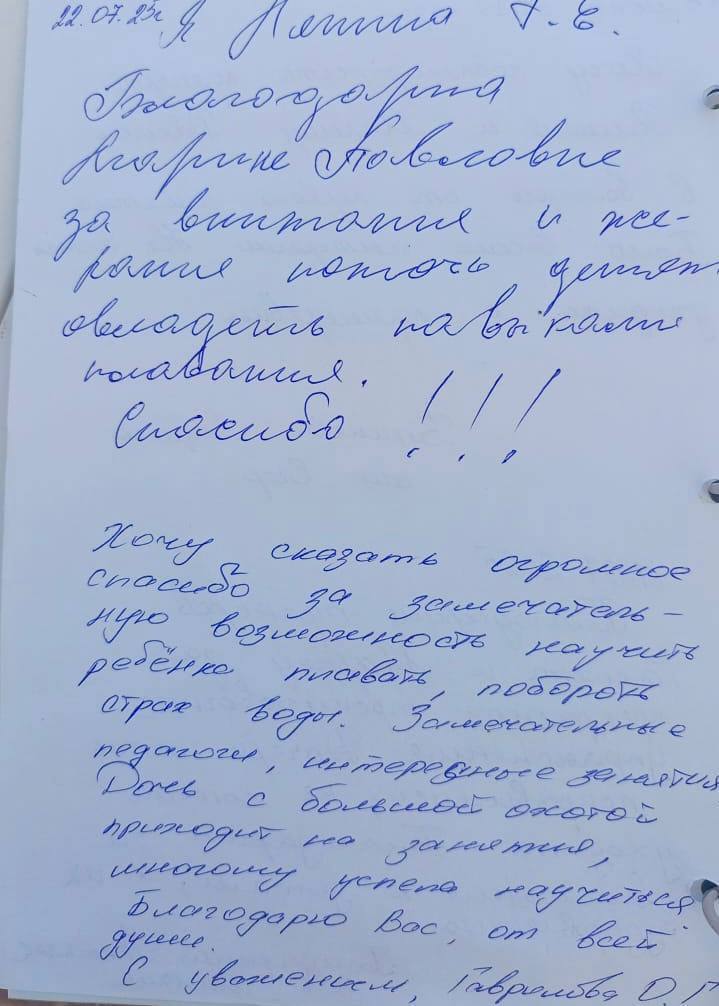 22.07.25г Я Г.Е.
Благодарна
Павловне
за внимания и же-
лание помочь детям
овладеть навыками
плавания.
Спасибо !!!
Хочу сказать огромное
спасибо за замечатель-
ную возможность научить
ребёнка плавать, побороть
страх воды. Замечательные
педагоги, интересные занятия
Дочь с большой охотой
приходит на занятия,
многому успела научиться
Благодарю Вас, от всей
души.
С уважением, Гаврилова О.Г